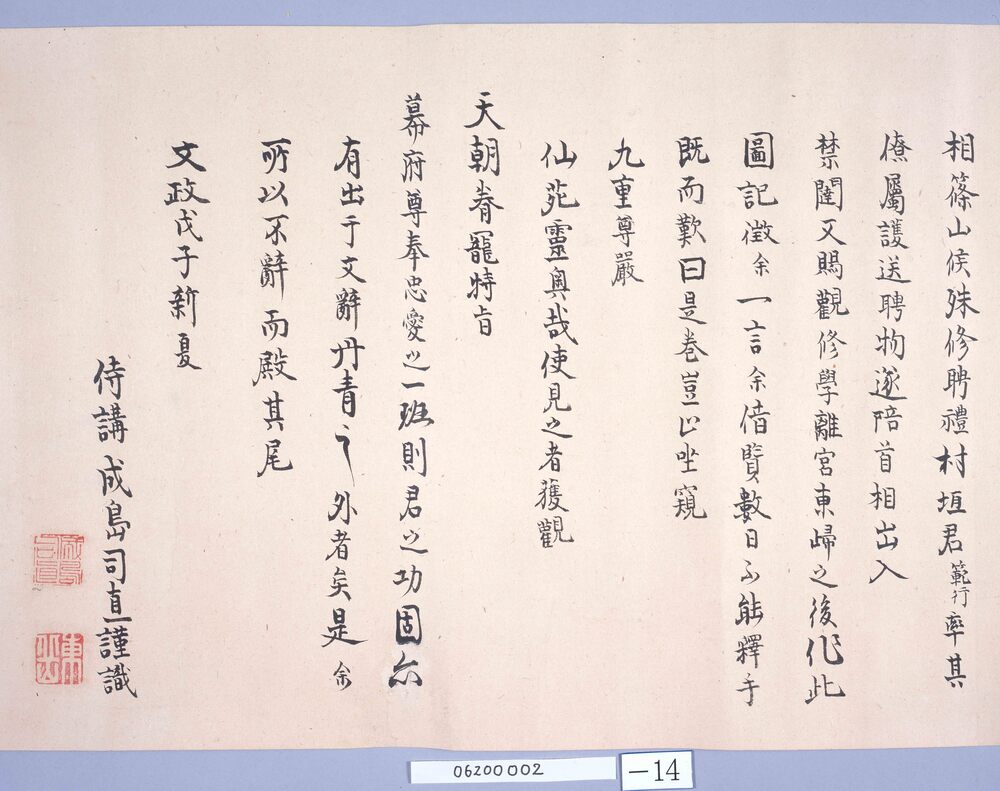 相篠山侯殊修聘禮村垣君範行率其
僚屬護送聘物遂陪首相出入
禁闥又賜觀修學離宮東歸之後作此
圖記徵余一言余借覽數日不能釋手
既而歎曰是卷豈止坐窺
九重尊嚴
仙苑靈奥哉使見之者獲觀
天朝眷寵特旨
幕府尊奉忠愛之一班則君之功固亦
有出于文辭丹青之外者矣是余
所以不辭而殿其尾
文政戊子新夏
侍講成島司直謹識
06200002
-14